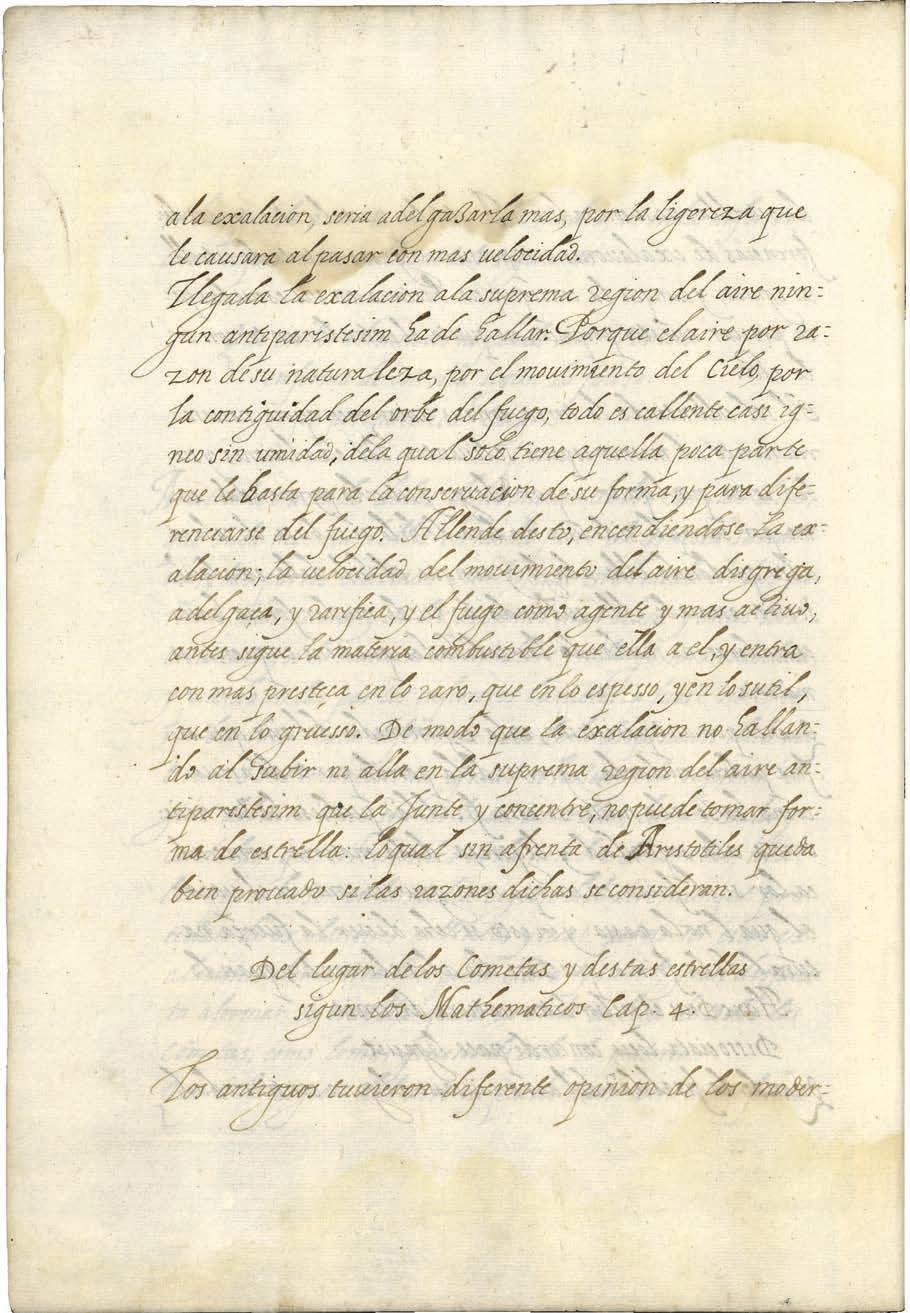 a la exalacion, seria adelgaßarla mas, por la ligereza que
le causara al pasar con mas uelocidad.
Llegada la exalacion a la suprema region del aire nin-
gun antiparistesim ha de hallar. Porque el aire por ra-
zon de su naturaleza, por el mouimiento del Cielo, por
la contiguidad del orbe del fuego, todo es callente casi ig-
neo sin umidad, de la qual solo tiene aquella poca parte
que le basta para la conseruacion de su forma, y para dife-
renciarse del fuego. Allende desto, encendiendose la ex-
alacion, la uelocidad del mouimiento del aire disgrega,
adelgaça, y rarifica, y el fuego como agente y mas actiuo,
antes sigue la materia combustible que ella a el, y entra
con mas presteça en lo raro, que en lo espesso, y en lo sutil,
que en lo gruesso. De modo que la exalacion no hallan-
do al subir ni alla en la suprema region del aire an-
tiparistesim que la Junte y concentre, no puede tomar for-
ma de estrella. lo qual sin afrenta de Aristotiles queda
bien prouado si las razones dichas se consideran.
Del lugar de los Cometas y destas estrellas
sigun los Mathematicos Cap. 4.
Los antiguos tuuieron diferente opinion de los moder-